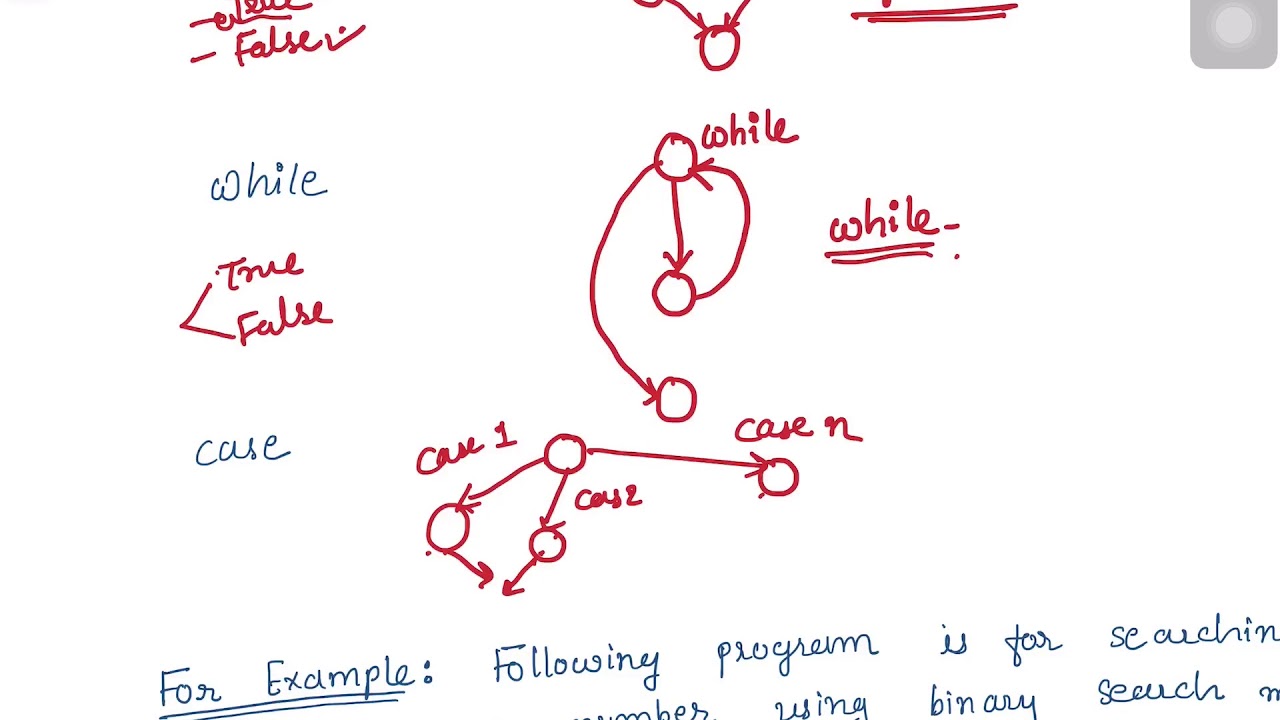 - False
while
while
while -
True
False
case
case 1
cas2
case n
For Example: Following program is for searchin
number using binary search m